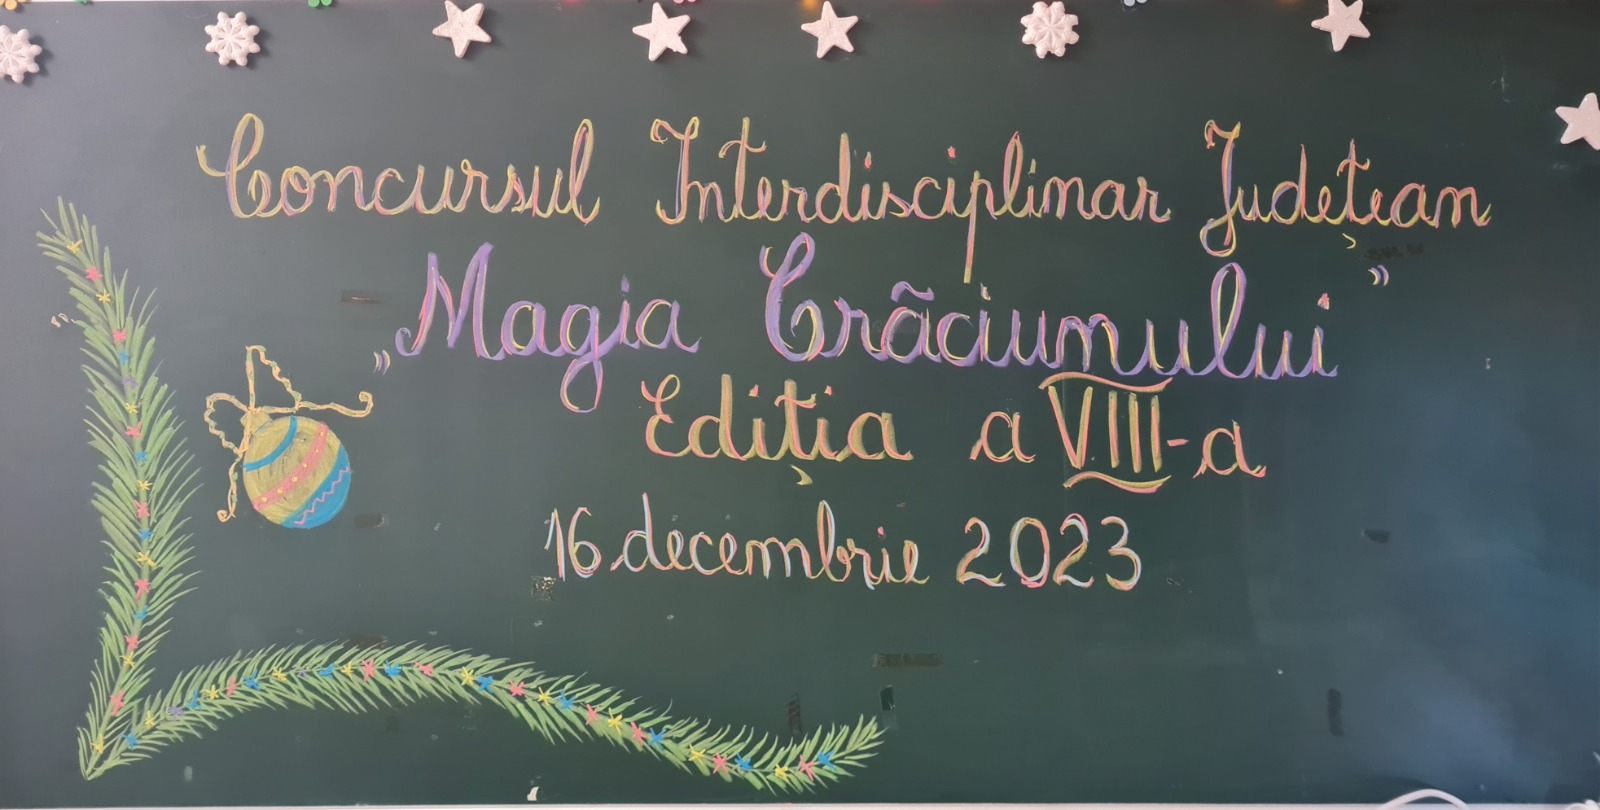 Concursul Interdisciplinar Județean
„Magia Crăciunului”
Ediția a VIII-a
16 decembrie 2023